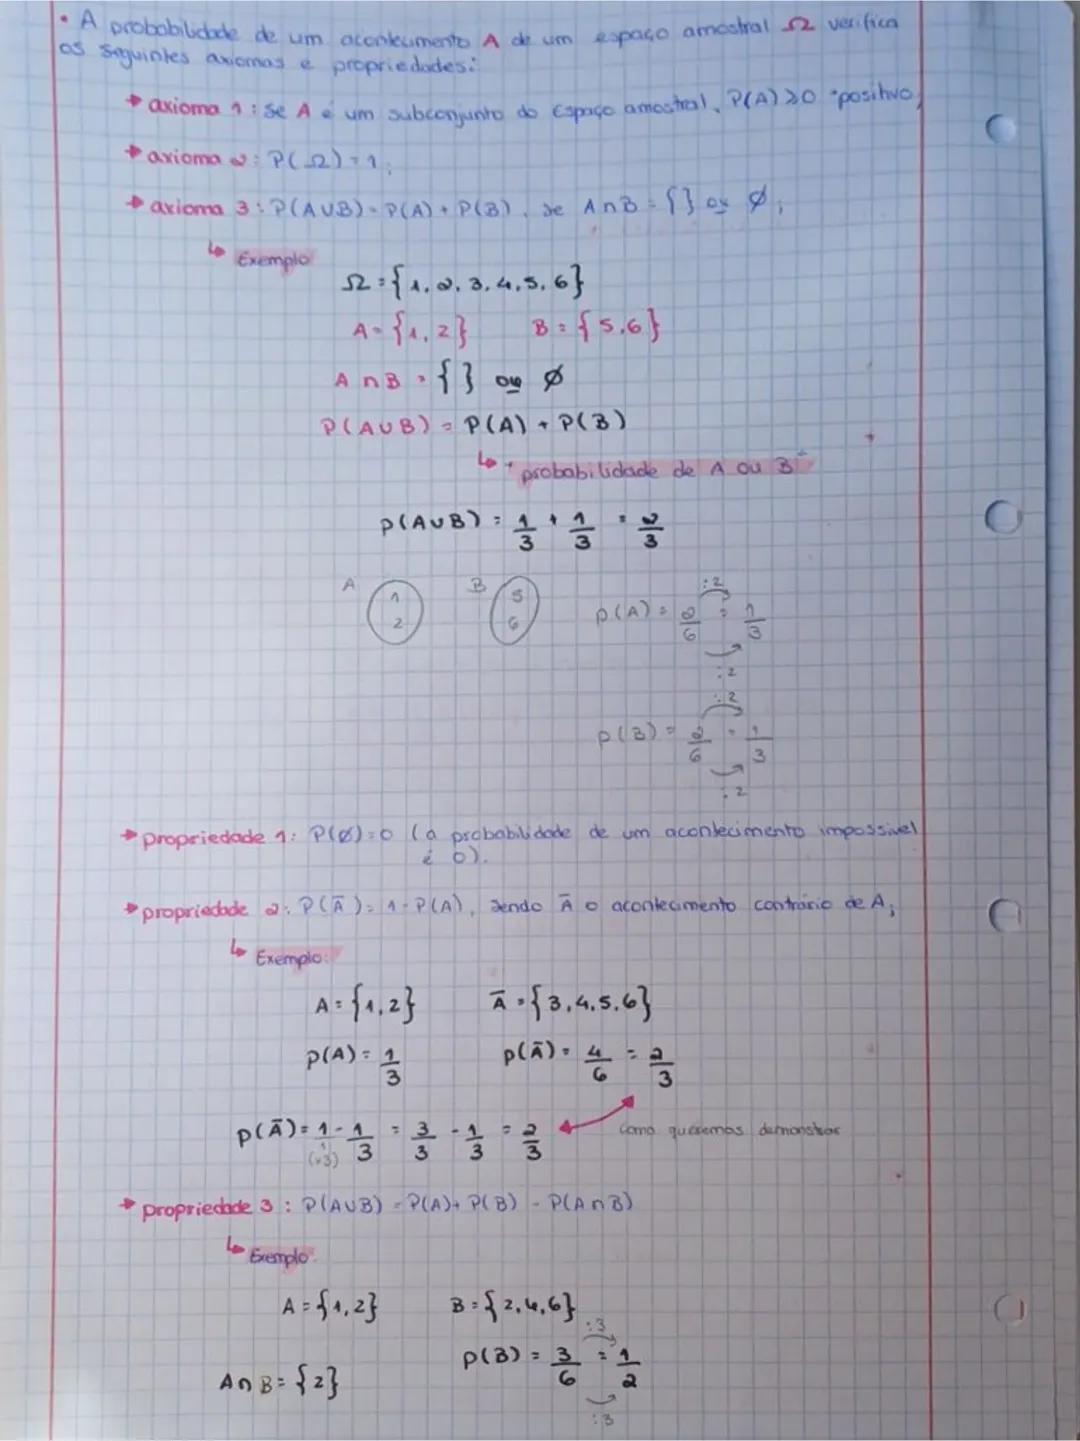 • A probabilidade de um acontecimento A de um espaço amostral Ω verifica
os seguintes axiomas e propriedades:
→ axioma 1: Se A é um subconjunto do espaço amostral, P(A) ≥ 0 "positivo
→ axioma 2: P(Ω) = 1;
→ axioma 3: P(A∪B) = P(A) + P(B), se A∩B = {} ou ∅;
↳ Exemplo
Ω = {1, 2, 3, 4, 5, 6}
A = {1, 2} B = {5, 6}
A ∩ B = {} ou ∅
P(A∪B) = P(A) + P(B)
↳ "probabilidade de A ou B"
p(A∪B) = 1/3 + 1/3 = 2/3
A 1 2 B 5 6
:2
p(A) = 2/6 = 1/3
:2
:2
p(B) = 2/6 = 1/3
:2
→ propriedade 1: P(∅) = 0 (a probabilidade de um acontecimento impossivel
é 0).
→ propriedade 2: P(Ā) = 1 - P(A), sendo Ā o acontecimento contrário de A;
↳ Exemplo:
A = {1, 2} Ā = {3, 4, 5, 6}
p(A) = 1/3 p(Ā) = 4/6 = 2/3
p(Ā) = 1 - 1/3 = 3/3 - 1/3 = 2/3 como queremos demonstrar
(×3)
→ propriedade 3: P(A∪B) = P(A) + P(B) - P(A∩B)
↳ Exemplo:
A = {1, 2} B = {2, 4, 6}
:3
p(B) = 3/6 = 1/2
A∩B = {2}
:3